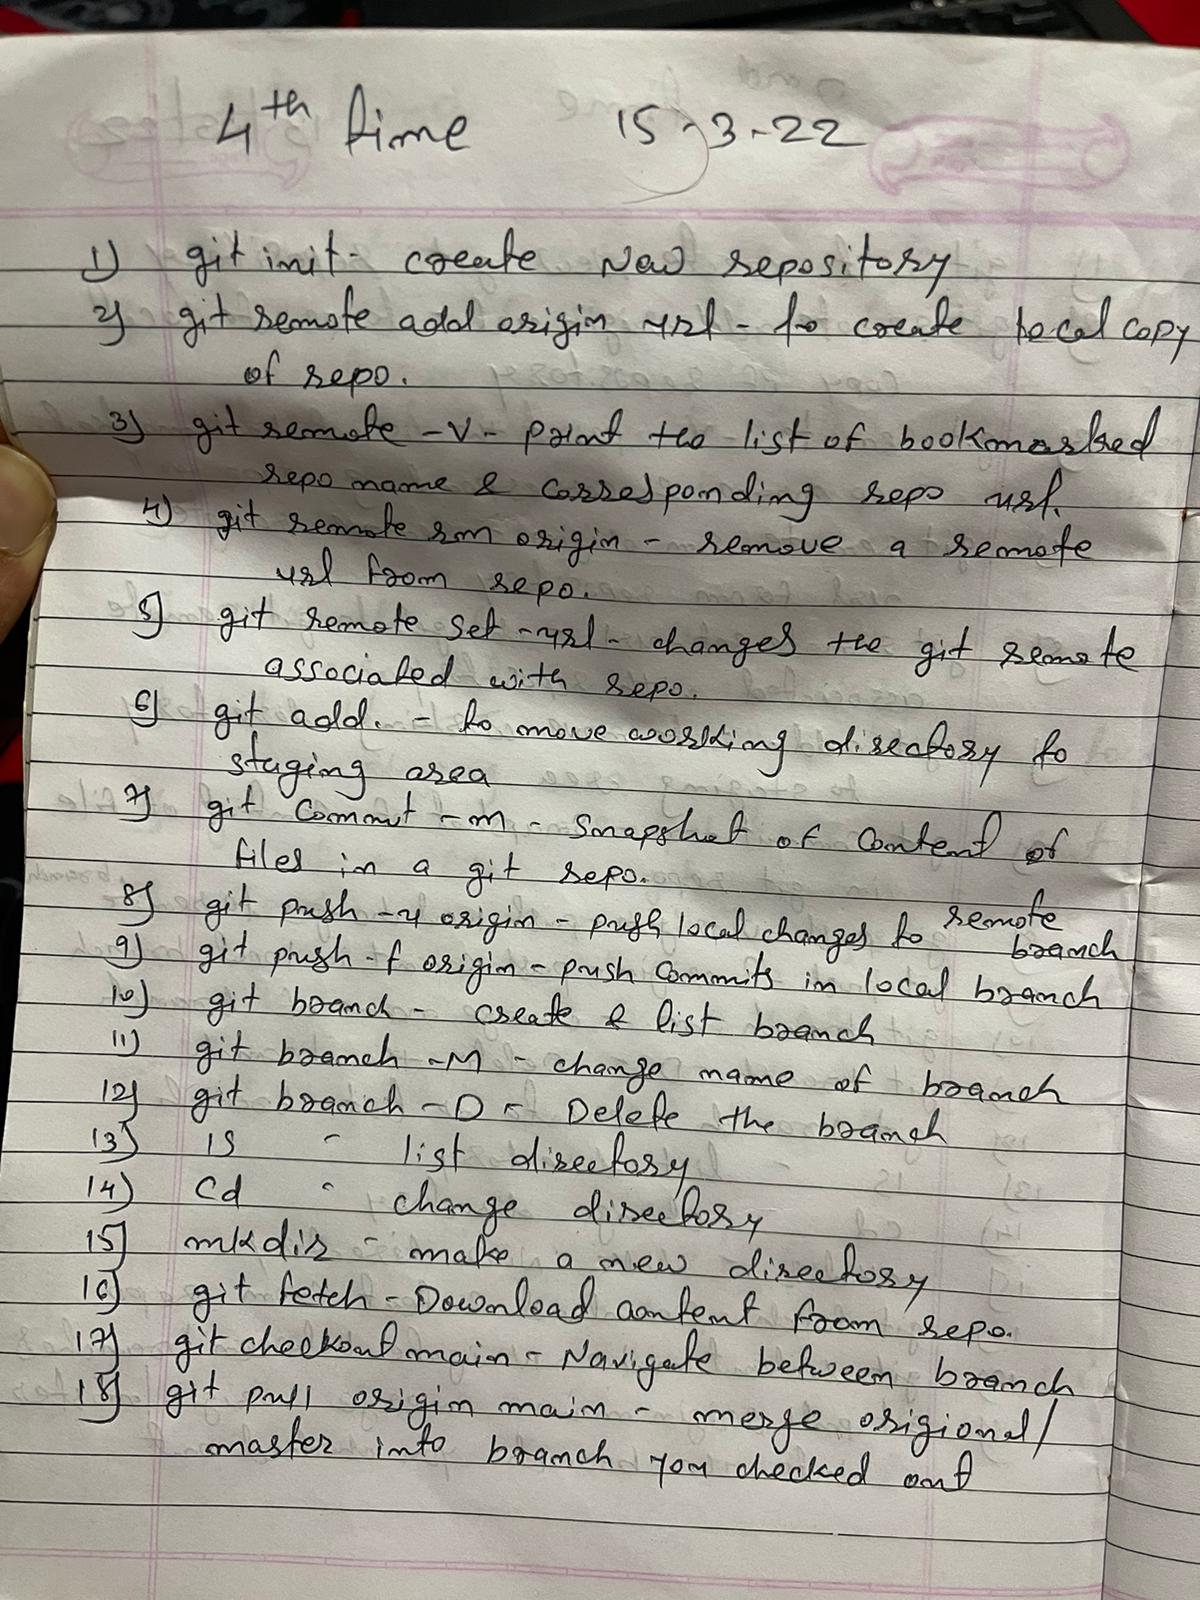 4th time 15-3-22
1) git init - create New repository
2) git remote add origin url - to create local copy
of repo.
3) git remote -v - print the list of bookmarked
repo name & corresponding repo url.
4) git remote rm origin - remove a remote
url from repo.
5) git remote set-url - changes the git remote
associated with repo.
6) git add. - to move working directory to
staging area
7) git commit -m - snapshot of content of
files in a git repo.
8) git push -u origin - push local changes to remote
branch
9) git push -f origin - push commits in local branch
10) git branch - create & list branch
11) git branch -M - change name of branch
12) git branch -D - Delete the branch
13) ls - list directory
14) cd - change directory
15) mkdir - make a new directory
16) git fetch - Download content from repo.
17) git checkout main - Navigate between branch
18) git pull origin main - merge origional/
master into branch you checked out